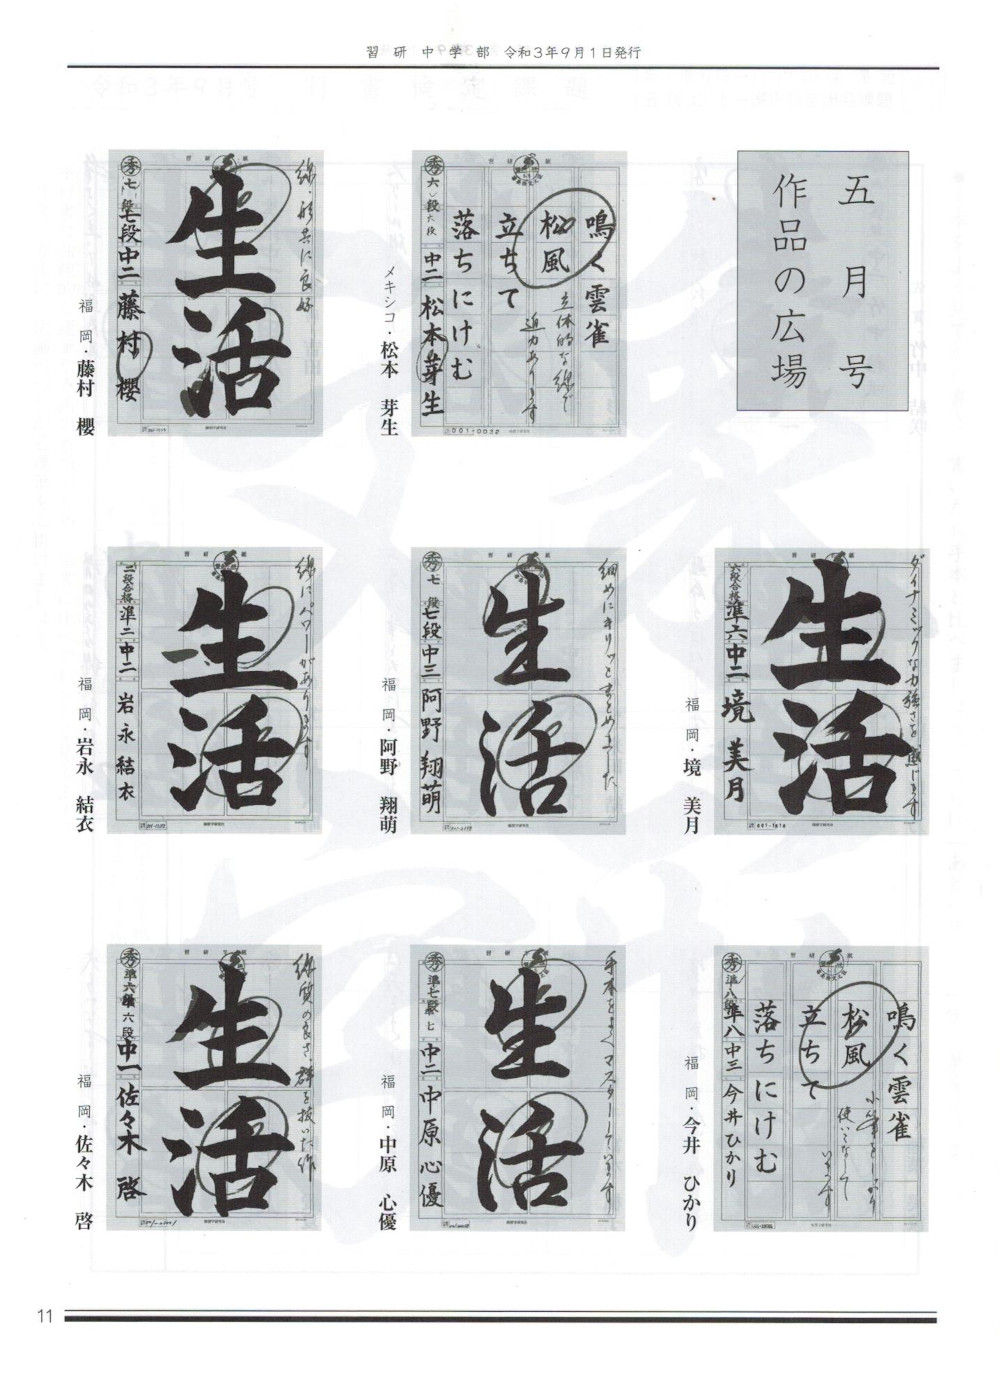 習研中学部 令和3年9月1日発行
五月号
作品の広場
習研
秀
六段
六段
中二
松本芽生
鳴く雲雀
松風
立ちて
落ちにけむ
立体的な線で
迫力あります
001-0032
メキシコ・松本 芽生
習研
秀
七段
七段
中二
藤村櫻
生活
線・形共に良好
福岡・藤村 櫻
習研
六段合格
準六
中二
境美月
生活
ダイナミックな力強さを感じます
福岡・境 美月
習研
秀
七段
七段
中三
阿野翔萌
生活
細めにキリッとまとめました
福岡・阿野 翔萌
習研
二段合格
準二
中二
岩永結衣
生活
線にパワーがあります
福岡・岩永 結衣
習研
秀
準八段
準八
中三
今井ひかり
鳴く雲雀
松風
立ちて
落ちにけむ
小筆をしっかり
使いこなして
います
福岡・今井 ひかり
習研
秀
準七段
中二
中原心優
生活
手本をよくマスターしています
福岡・中原 心優
秀
準六段
準六段
中一
佐々木啓
生活
線質の良さ、群を抜いた作
福岡・佐々木 啓
11